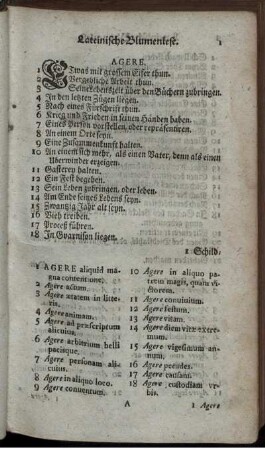 Lateinische Blumenlese. 1
AGERE.
1 Etwas mit grossem Eifer thun.
2 Vergebliche Arbeit thun.
3 Seine Lebenszeit über den Büchern zubringen.
4 In den letzten Zügen liegen.
5 Nach eines Fürschrifft thun.
6 Krieg und Frieden in seinen Händen haben.
7 Eines Person vorstellen, oder repräsentiren.
8 An einem Orte seyn.
9 Eine Zusammenkunft halten.
10 An einem sich mehr, als einen Vater, denn als einen
Uberwinder erzeigen.
11 Gasterey halten.
12 Ein Fest begehen.
13 Sein Leben zubringen, oder leben.
14 Am Ende seines Lebens seyn.
15 Zwantzig Jahr alt seyn.
16 Vieh treiben.
17 Proceß führen.
18 In Guarnison liegen.
1 Schild-
1 AGERE aliquid ma-
gna contentione.
2 Agere actum.
3 Agere ætatem in litte-
ris.
4 Agere animam.
5 Agere ad præscriptum
alicuius.
6 Agere arbitrium belli
pacisque.
7 Agere personam ali-
cuius.
8 Agere in aliquo loco.
9 Agere conventum.
10 Agere in aliquo pa-
trem magis, quam vi-
ctorem.
11 Agere convivium.
12 Agere festum.
13 Agere vitam.
14 Agere diem vitæ extre-
mum.
15 Agere vigesimum an-
num.
16 Agere pecudes.
17 Agere caussam.
18 Agere custodiam vr-
bis.
A 1 Agere